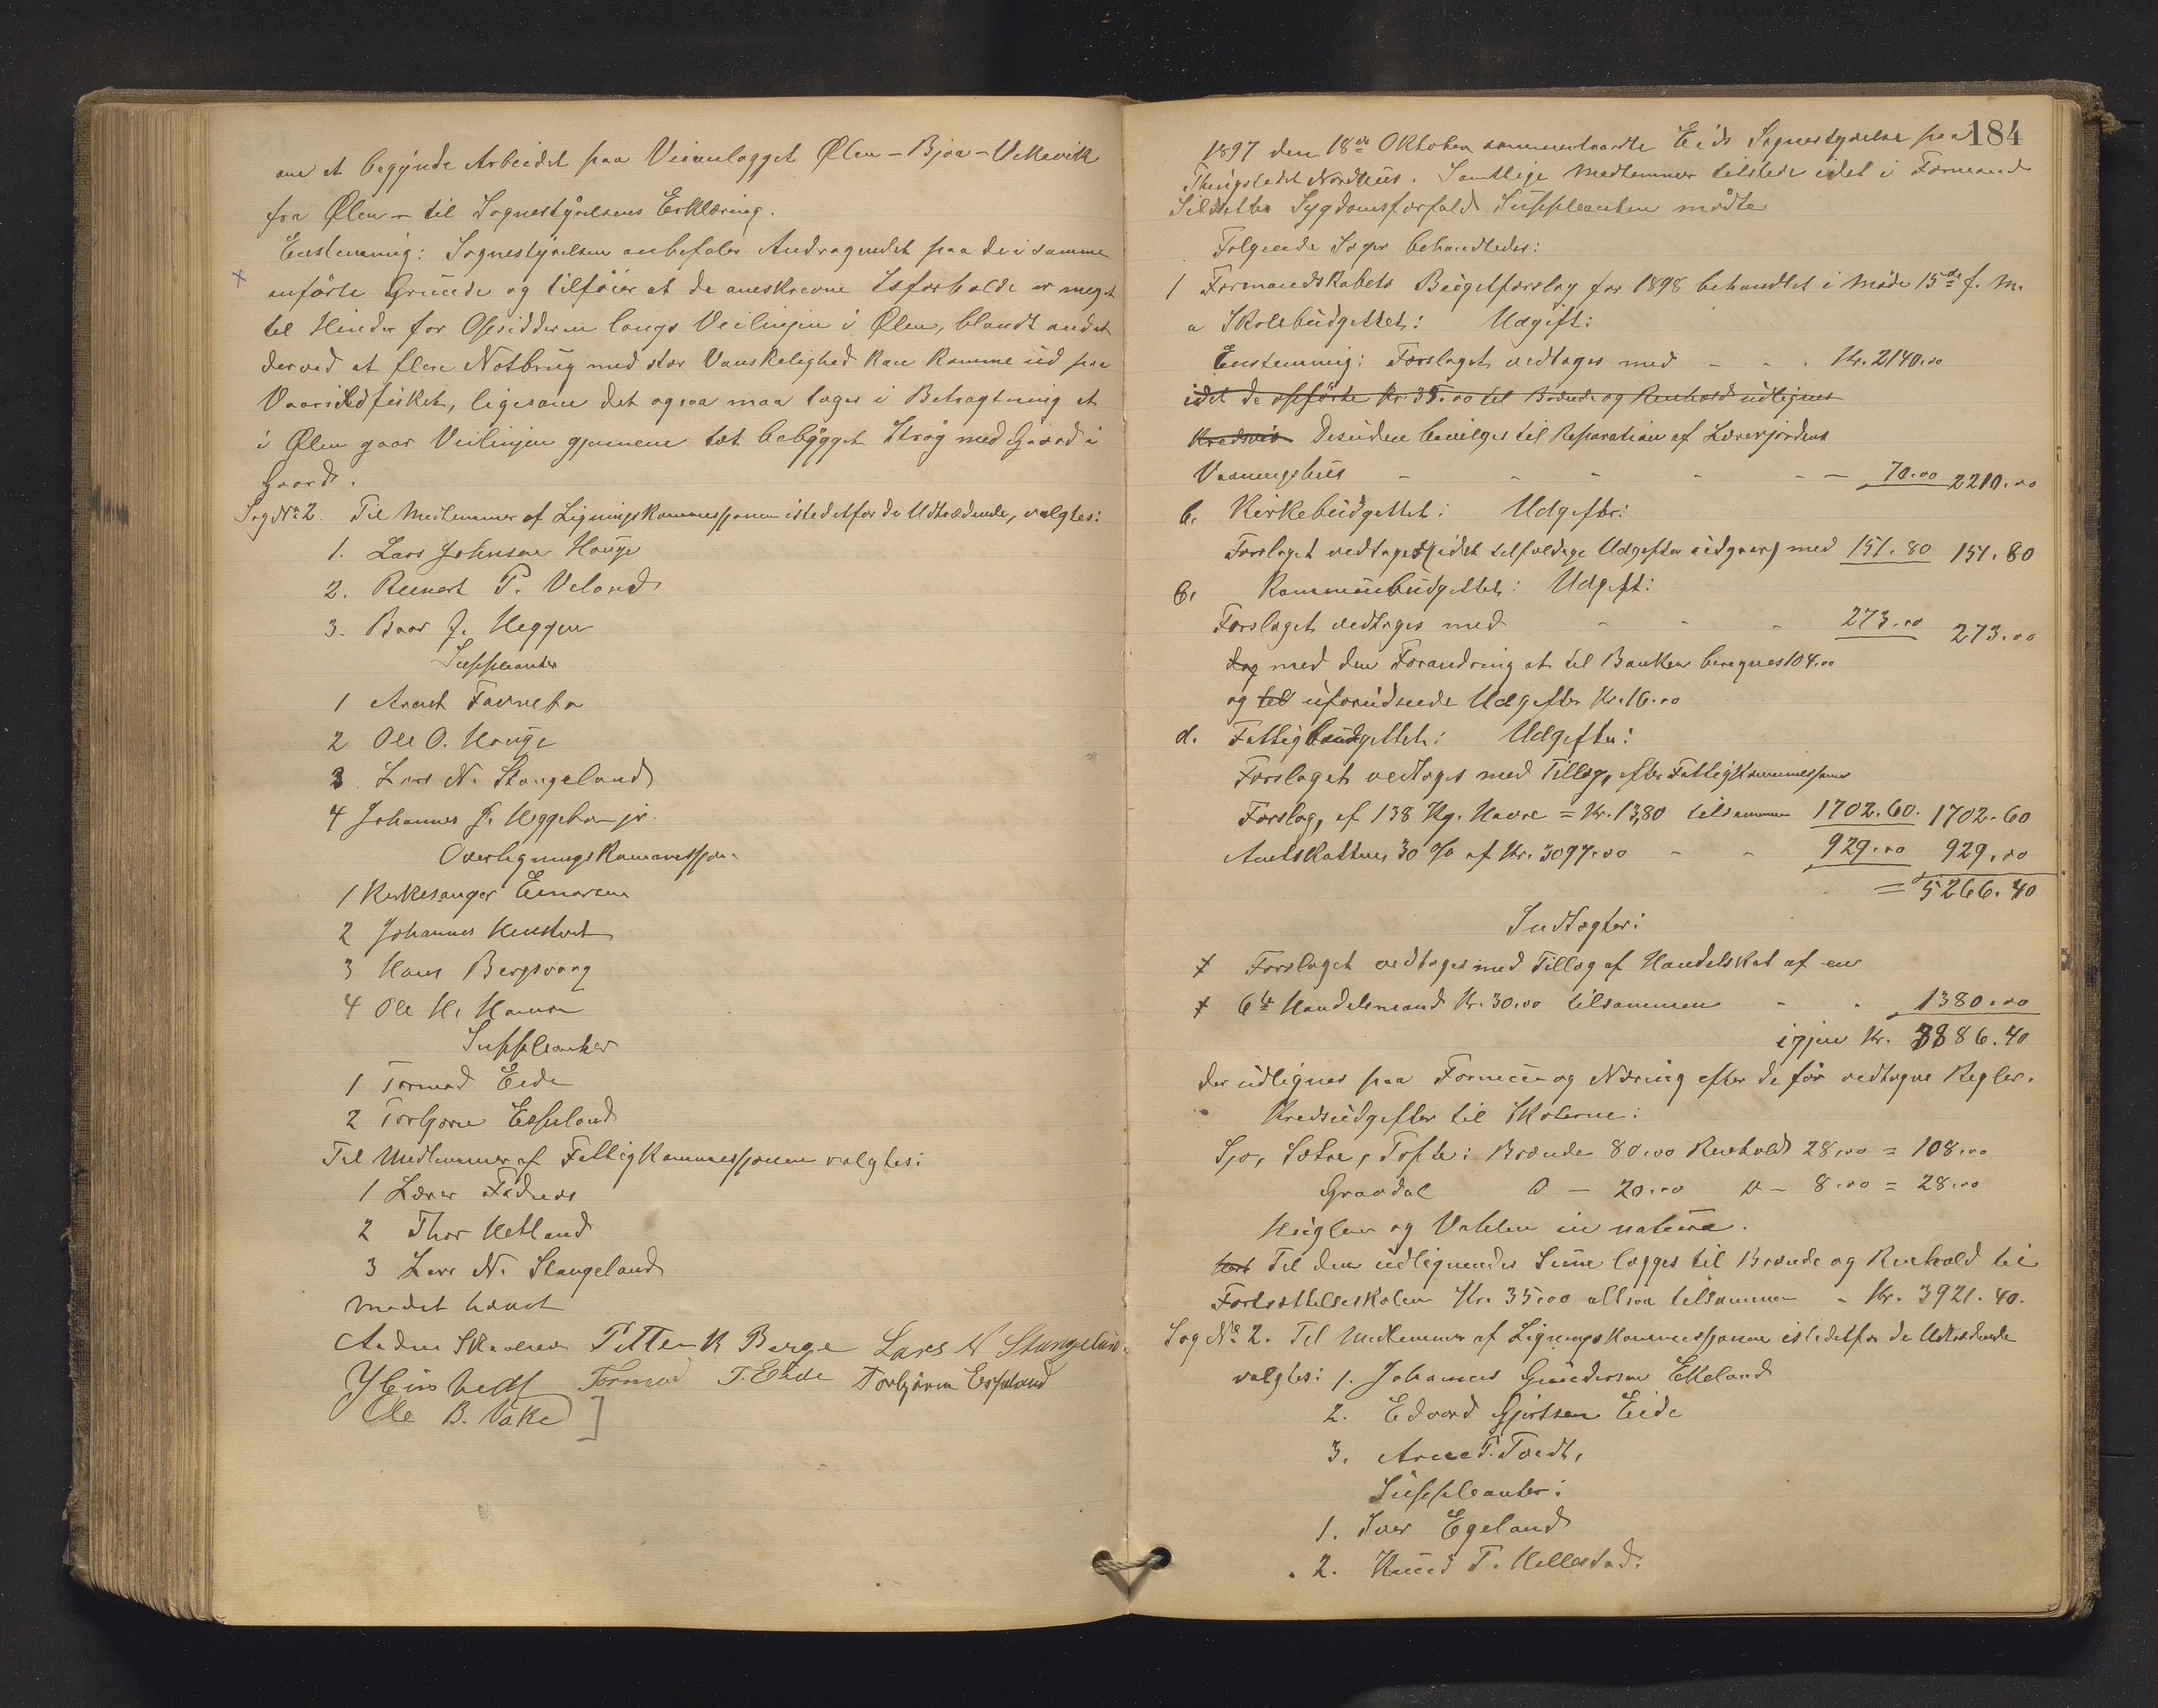 om at begynde Arbeidet paa Veianlægget Ølen - Bjoa - Vikevik
fra Ølen - til Sognestyrelsens Erklæring.
Enstemmig: Sognestyrelsen anbefaler Andragendet paa de i samme
anførte Grunde og tilføier at de omskrevne Isforholde er meget
til Hinder for Opsidderne langs Veilinjen i Ølen, blandt andet
derved at flere Notbrug med stor Vanskelighed kan komme ud paa
Vaarsildfisket, ligesom det ogsaa maa tages i Betragtning at
i Ølen gaar Veilinjen gjennem tæt bebygget Strøg med Gaard i
Gaard.
Sag No 2. Til Medlemmer af Ligningskommissjonen istedetfor de Udtrædende, valgtes:
1. Lars Johnsen Hauge
2. Reinert T. Veland
3. Baar J. Heggen
Suppleanter
1 Arent
2 Ole O. Hauge
3. Lars N. Stangeland
4 Johannes J. Heggebø jr.
Overligningskommissjon
1 Kirkesanger Einarsen
2 Johannes
3 Hans Bergsvaag
4 Ole H. Hamre
Suppleanter
1 Tormod Eide
2 Torbjørn Espeland
Til Medlemmer af Fattigkommissjonen valgtes:
1 Lærer
2 Thor Hetland
3 Lars N. Stangeland
Mødet hævet
Peter K Berge Lars N Stangeland
Tormod T. Eide Torbjørn Espeland
Ole B. Vake
184
1897 den 18de Oktober sammentraadte Eids Sognestyrelse paa
Thingstedet Nordhus. Samtlige Medlemmer tilstede idet i Formand
Sildetter Sygdomsforfald Suppleanten mødte
Følgende Sager behandledes:
1 Formandskabets Budgetforslag for 1898 behandlet i Møde 15de f. M.
a Skolebudgettet: Udgift:
Enstemmig: Forslaget vedtages med - - . Kr. 2140.00
idet de opførte Kr. 35.00 til Brænde og Renhold udlignes
Kredsvis Desuden bevilges til Reparation af Lærerjordens
Vaaningshus - - - - - 70.00 2210.00
b. Kirkebudgettet: Udgifter:
Forslaget vedtages (idet tilfældige Udgifter udgaar) med 151.80 151.80
c. Kommunebudgettet: Udgift:
Forslaget vedtages med - - - 273.00 273.00
dog med den Forandring at til Banken beregnes 104.00
og til uforudseede Udgifter Kr. 16.00
d. Fattigbudgettet: Udgifter:
Forslaget vedtages med Tillæg, efter Fattigkommissjonens
Forslag, af 138 Kg. Havre = Kr. 13,80 tilsammen 1702.60. 1702.60
Amtskatten 30 % af Kr. 3097.00 - - 929.00 929.00
= 5266.40
Indtægter:
+ Forslaget vedtages med Tillæg af Handelskat af en
+ 6te Handelsmand Kr. 30.00 tilsammen - . 1380.00
igjen Kr. 3886.40
der udlignes paa Formue og Næring efter de før vedtagne Regler.
Kredsudgifter til Skolerne:
Sjo, Sætre, Tofte: Brænde 80.00 Renhold 28.00 = 108.00
Gravdal D - 20.00 D - 8.00 = 28.00
Heigland og Vatlen in natura.
Til den udlignendes Sum lægges til Brænde og Renhold til
Fortsættelseskolen Kr. 35.00 altsaa tilsammen - Kr. 3921.40.
Sag No 2. Til Medlemmer af Ligningskommissjonen istedetfor de Udtrædende
valgtes: 1. Johannes Gundersen Ekeland
2. Edvard Gjertsen Eide
3. Arne T. Tvedt,
Suppleanter:
1. Iver Egeland
2. Knud T. Hellestad.